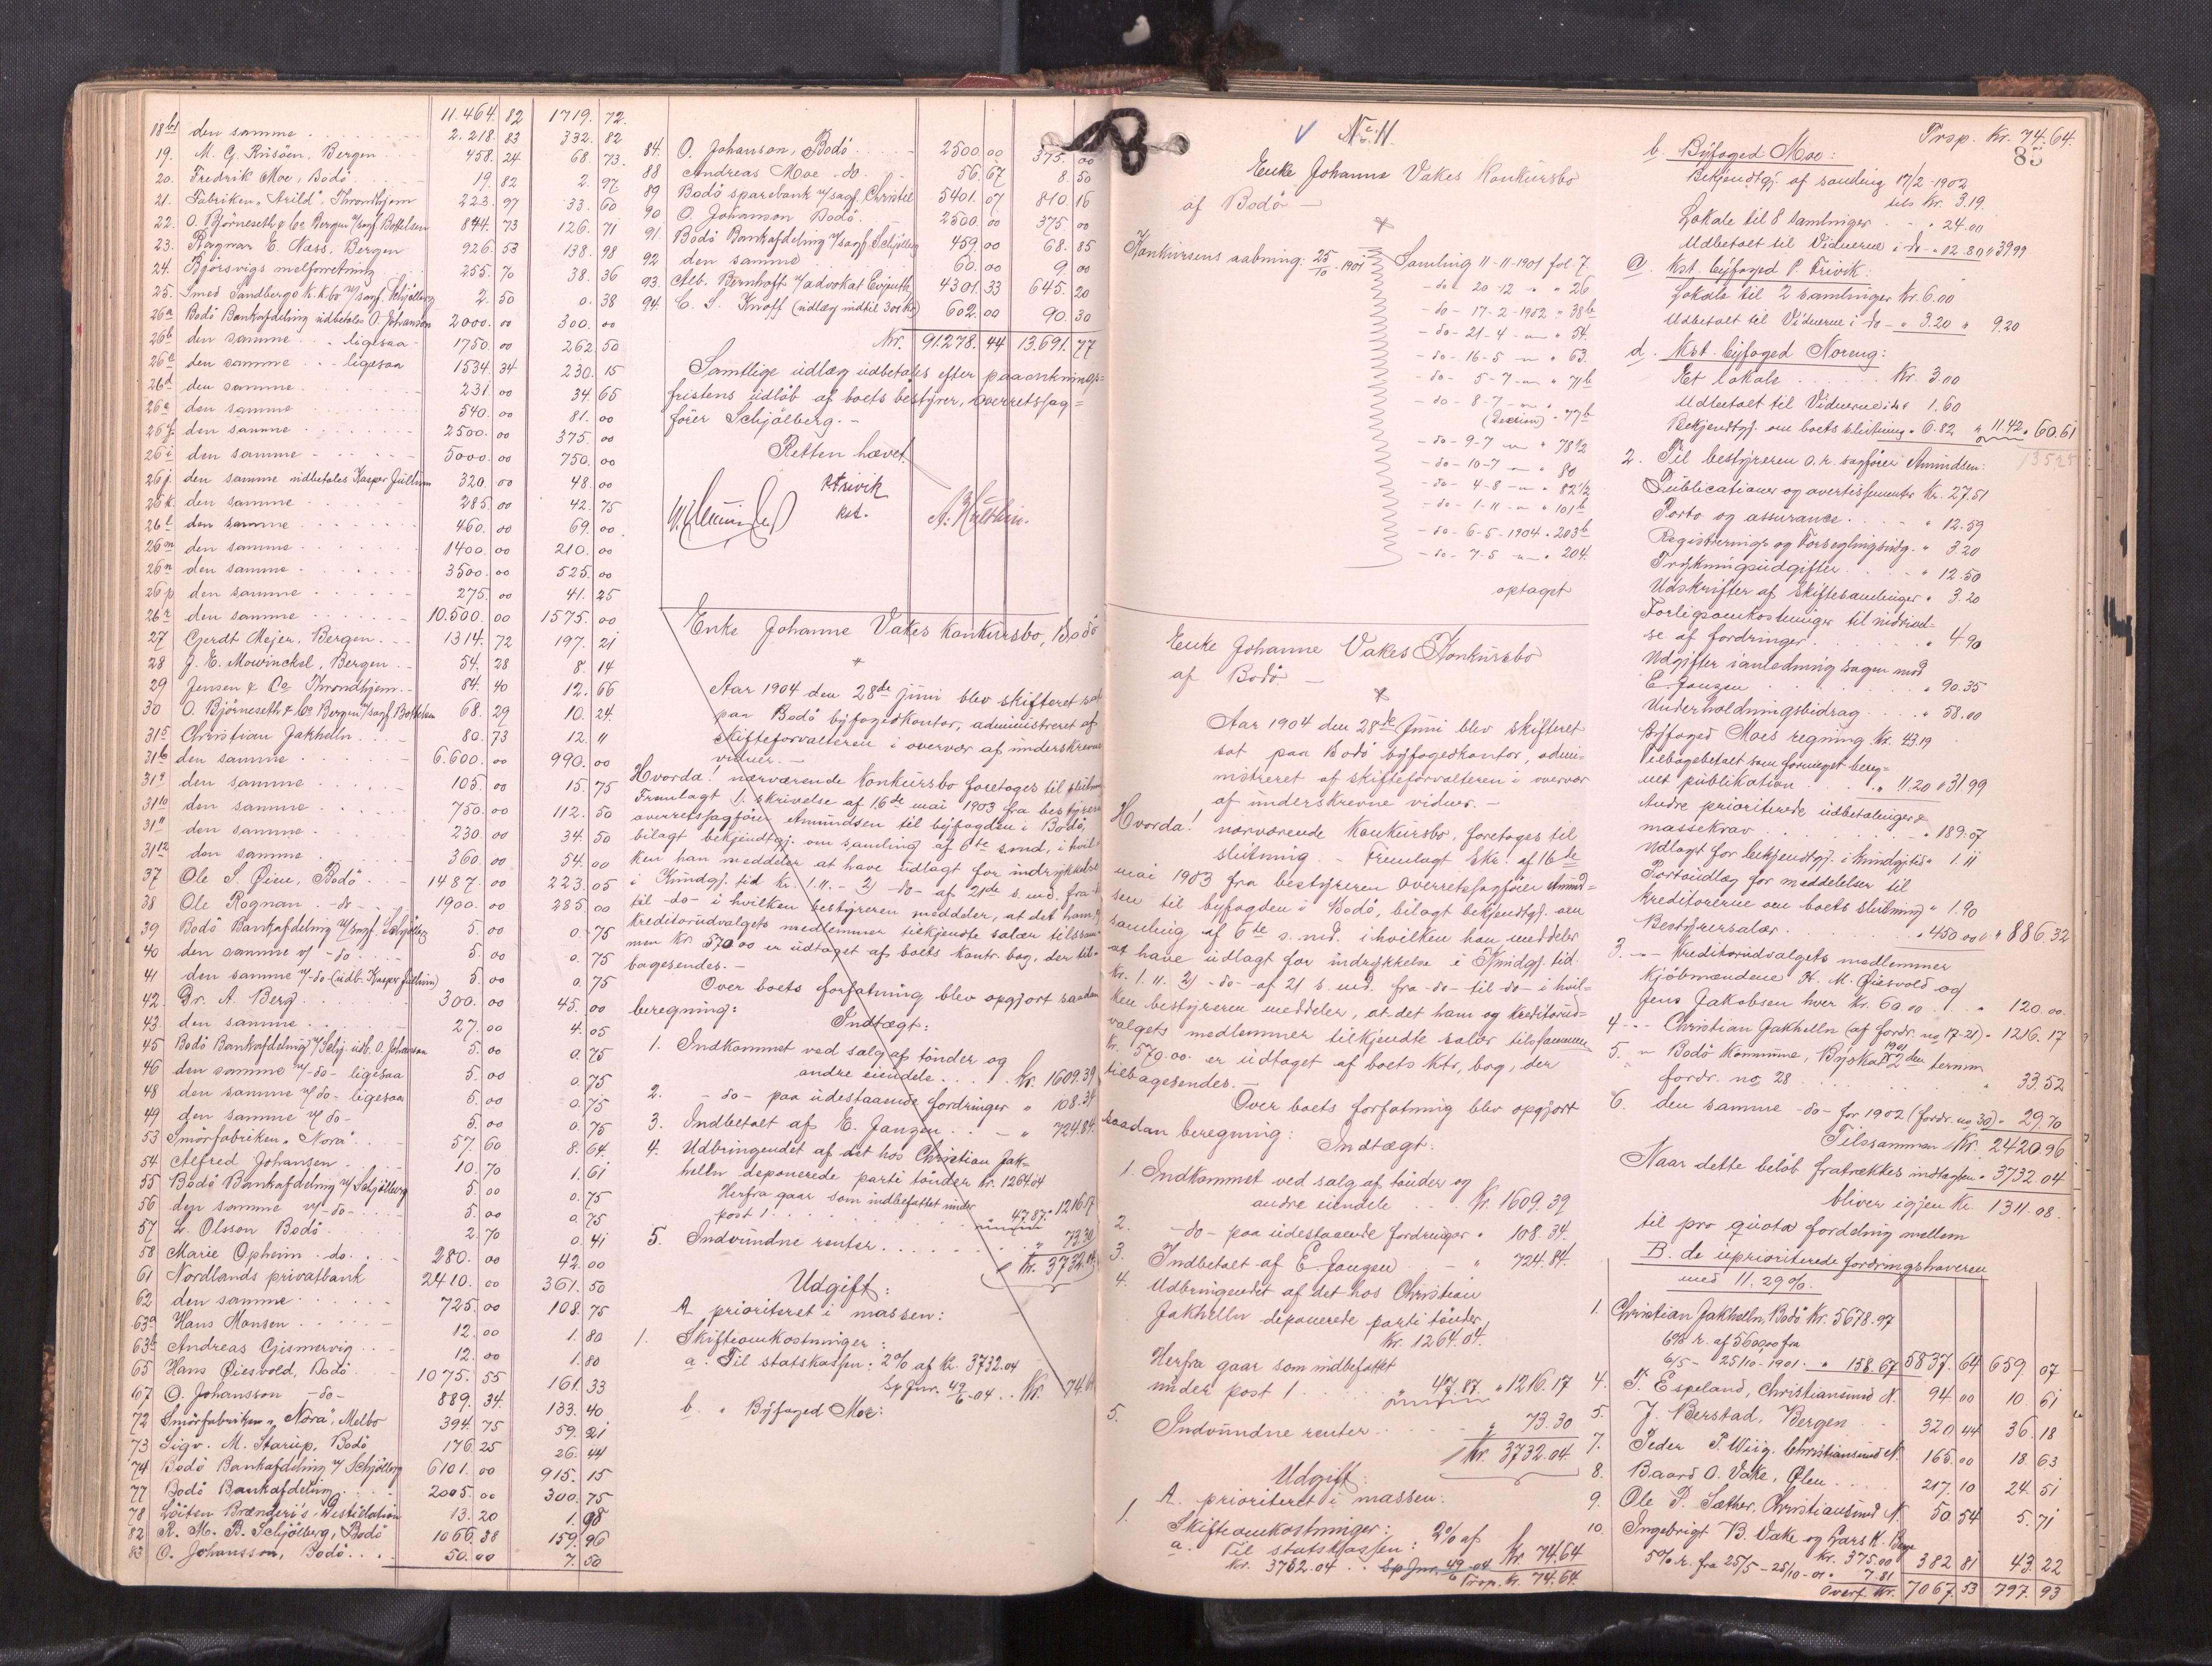 11.464. 82 1719. 72.
18b1 den samme 2.218. 83 332. 82
19. M. G. Krüsöen, Bergen 458. 24 68. 73.
20. Fredrik Moe, Bodö 19. 82 2. 97
21. Fabriken "Arild", Throndhjem 223. 97 33. 60
22. O. Bjørneseth & Co Bergen v/sagf. Bottelsen 844. 73 126. 71
23. Ragnar E. Næss. Bergen 926. 53 138. 98
24. Bjørsvigs melforretning 255. 70 38. 36
25. Smed Sandbergs k.k.bo v/sagf. Schjölberg 2. 50 0. 38
26a Bodö Bankafdeling udbetales O. Johanson 2000. 00 300. 00
26b den samme - ligesaa 1750 00 262 50
26c den samme - ligesaa 1534. 34 230. 15
26d den samme 231. 00 34 65
26e den samme 540. 00 81. 00
26f den samme 2500. 00 375. 00
26i den samme 5000. 00 750. 00
26j. den samme udbetales Kasper Jüllum 320. 00 48. 00
26k den samme 285. 00 42. 75
26l den samme 460. 00 69 00
26m den samme 1400. 00 210. 00
26n den samme 3500. 00 525. 00
26p den samme 275. 00 41. 25
26r den samme 10.500. 00 1575. 00
27 Gerdt Mejer, Bergen. 1314. 72 197. 21
28 J. E. Mowinckel, Bergen 54. 28 8. 14
29 Jensen & Co Throndhjem. 84. 40 12. 66
30 O. Bjørneseth & Co Bergen v/sagf. Bottelsen 68. 29 10. 24.
31 Christian Jakhelln 80. 73 12. 11
31b den samme 6.600. 00 990. 00
31 den samme 105. 00 15. 75
31 10 den samme 750. 00 112. 50
31 11 den samme 230 00 34. 50
31 12 den samme 360. 00 54. 00
37 Ole S. Øien, Bodö 1487. 00 223. 05
38 Ole Rognan - do - 1900. 00 285 00
39 Bodö Bankafdeling v/sagf. Schjölberg 5. 00 0. 75
40 den samme v/ - do - 5. 00 0. 75
41 den samme v/ - do (udb. Kasper Jüllum) 5. 00 0. 75
42. Dr. A. Berg 300. 00 45. 00
43. den samme 27. 00 4. 05
45 Bodö Bankafdeling v/Schj. udb. O. Johanson 5. 00 0. 75
46 den samme v/ - do - ligesaa 5. 00 0. 75
48 den samme v/ do - ligesaa 5. 00 0. 75
49 den samme v/ do - 5. 00 0. 75
53 Smörfabriken "Nora" 57. 60 8. 64.
54 Alfred Johansen 10. 70 1. 61
55 Bodö Bankafdeling v/ Schjölberg 5. 00 0. 75
56 den samme v/ - do - 5. 00 0. 75
57 L. Olsson Bodö 2. 70 0. 41
58 Marie Opheim - do. 280. 00 42. 00
61 Nordlands privatbank 2410. 00 361. 50
62 den samme 725. 00 108. 75
63a Hans Monsen 12. 00 1. 80
63b Andreas Gjismervig 12. 00 1. 80
65 Hans Øiesvold, Bodö 1075. 55 161. 33
67 O. Johansson - do - 889. 34. 133. 40
72 Smörfabriken "Nora", Melbo 394. 75 59. 21
73 Sigv. M. Starup, Bodö 176. 25 26. 44
74 Bodö Bankafdeling v/ Schjölberg 6101. 00 915. 15
77 Bodö Bankafdeling 2005. 00 300. 75
78 Löiten Brænderi's Destillation 13. 20 1. 98
82 R. M. B. Schjölberg, Bodö 1066. 38 159. 96
83 O. Johansson, Bodö 50. 00 7. 50
84. O. Johanson, Bodö 2500. 00 375. 00
88 Andreas Moe - do. 56. 67 8. 50
89 Bodö sparebank v/sagf. Christie 5401. 07 810. 16
90 O. Johanson Bodö 2500. 00 375. 00
91. Bodö Bankafdeling v/sagf. Schjölberg 459. 00 68. 85
92 den samme 60. 00 9. 00
93. Alb. Bernhoft v/advokat Evjenth 4301. 33 645. 20
94. C. S. Knoff (udlæg indtil 300 Kr) 602. 00 90. 30
Kr. 91.278. 44 13.691. 77
Samtlige udlæg udbetales efter paaanknings=
fristens udløb af boets bestyrer, overretssag=
förer Schjölberg. -
Retten hævet.
Trivik
kst.
Enke Johanne Vakes konkursbo, Bodö
Aar 1904 den 28de juni blev skifteret sat
paa Bodö byfogedkontor, administreret af
skifteforvalteren i overvær af underskrevne
vidner. -
Hvorda! nærværende konkursbo foretoges til slutning
Fremlagt 1. skrivelse af 16de mai 1903 fra bestyreren
overretssagförer Amundsen til byfogden i Bodö,
bilagt bekjendtgj. om samling af 6te s.md, i hvil=
ken han meddeler at have udlagt for indrykkelse
i Kundgj. tid. Kr. 1.11. - 2) - do - af 21de s. md. fra
til - do - i hvilken bestyreren meddeler, at det ham og
kreditorudvalgets medlemmer tilkjendte salær tilsam=
men Kr 570.00 er udtaget af boets kontr. bog, der til=
bagesendes. -
Over boets forfatning blev opgjort saadan
beregning:
Indtægt:
1. Indkommet ved salg af tönder og
andre eiendele Kr. 1609.39
2. - do - paa udestaaende fordringer " 108.34
3. Indbetalt af E. Jangen " 724.84.
4. Udbringendet af det hos Christian Jak=
helln deponerede parti tönder Kr. 1264.04
Herfra gaar som indbefattet under
post 1 47.87. " 1216.17
5. Indvundne renter " 73.30
Kr. 3732.04
Udgift:
A. prioriteret i massen:
1. Skifteomkostninger:
a. Til statskassen: 2% af Kr. 3732.04
Sp Jnr. 49/6-04 Kr. 74.64
b. " Byfoged Moe:
No. 11.
Enke Johanne Vakes Konkursbo
af Bodö -
Konkursens aabning. 25/10 - 1901
Samling 11-11-1901 fol 7.
- do - 20-12 - " " 26
- do - 17-2-1902 " 38b
- do - 21-4 - " " 54.
- do - 16-5 - " " 63.
- do - 5-7 - " " 77b
- do - 8-7 - "
(Decision) " 77b
- do - 9-7 - " " 78 1/2
- do - 10-7 - " " 80
- do - 4-8 - " " 82 1/2
- do - 1-11 - " " 101b
- do - 6-5-1904 " 203b
- do - 7-5 - " " 204.
optaget
Enke Johanne Vakes Konkursbo
af Bodö -
Aar 1904 den 28de Juni blev skifteret
sat paa Bodö byfogedkontor, admi=
nistreret af skifteforvalteren i overvær
af underskrevne vidner. -
Hvorda! nærværende Konkursbo, foretoges til
slutning. - Fremlagt Skr. af 16de
mai 1903 fra bestyreren overretssagförer Amund=
sen til byfogden i Bodö, bilagt bekjendtgj. om
samling af 6te s. md. i hvilken han meddeler
at have udlagt for indrykkelse i Kundgj. tid.
Kr. 1.11. 2) - do - af 21 s. md. fra - do - til do - i hvil=
ken bestyreren meddeler, at det ham og Kreditorud=
valgets medlemmer tilkjendte salær tilsammen
Kr. 570.00 er udtaget af boets ktr, bog, der
tilbagesendes. -
Over boets forfatning blev opgjort
saadan beregning:
Indtægt.
1. Indkommet ved salg af tönder og
andre eiendele Kr. 1609.39
2. - do - paa udestaaende fordringer " 108.34.
3. Indbetalt af E. Jangen " 724.84.
4. Udbringendet af det hos Christian
Jakhelln deponerede parti tönder
Kr. 1264.04.
Herfra gaar som indbefattet
under post 1 " 47.87. " 1216.17
5. Indvundne renter " 73.30
Kr. 3732.04.
Udgift:
A. prioriteret i massen:
1. Skifteomkostninger:
a. Til statskassen: 2% af
Kr. 3732.04 Sp Jnr. 49/6-04 Kr 74.64
Trsp. Kr. 74.64.
Trsp. Kr. 74.64.
85
b. Byfoged Moe:
Bekjendtgj. af samling 17/2-1902
tils Kr. 3.19.
Lokale til 8 samlinger " 24.00
Udbetalt til Vidnerne i do - " 12.80 " 39.99
c. Kst. byfoged P. Trivik:
Lokale til 2 samlinger Kr. 6.00
Udbetalt til Vidnerne i do - " 3.20 " 9.20
d. Kst. byfoged Noreng:
Et lokale Kr. 3.00
Udbetalt til Vidnerne i do " 1.60
Bekjendtgj. om boets slutning " 6.82 " 11.42 " 60.61
135.25
2. Til bestyreren o.r. sagförer Amundsen:
Publicationer og avertissementer Kr. 27.51
Porto og assurance " 12.59
Registrerings og Forseglingsudg. " 3.20
Trykningsudgifter " 12.50
Udskrifter af skiftesamlinger " 3.20
Forligsomkostninger til inddrivel=
se af fordringer " 4.90
Udgifter i anledning sagen mod
E. Jangen " 90.35
Underholdningsbidrag " 58.00
Byfoged Moes regning Kr. 43.19
Tilbagebetalt som formeget bereg=
net publikation " 11.20 " 31.99
Andre prioriterede udbetalinger &
massekrav " 189.07
Udlagt for bekjendtgj. i kundgj.tid. " 1.11
Portoudlæg for meddelelser til
kreditorerne om boets slutning " 1.90
Bestyrersalær " 450.00 " 886.32
3. - Kreditorudvalgets medlemmer
Kjöbmændene H. M. Øiesvold og
Jens Jakobsen hver Kr. 60.00 " 120.00.
4 - Christian Jakhelln (af fordr. no 17-21) " 1216.17
5. " Bodö Kommune, Byskat 1901 2den termin
fordr. no 28 " 33.52
6. den samme - do - for 1902 (fordr. no 30) " 29.70
Tilsammen Kr. 2420.96
Naar dette belöb fratrækkes indtægten " 3732.04
bliver igjen Kr. 1311.08.
til pro quota fordeling mellem
B. de uprioriterede fordringshavere
med 11.29%.
1. Christian Jakhelln, Bodö Kr. 5678.97
6% r. af 5600.00 fra
6/5 - 25/10-1901 " 158.67 5837. 64 659. 07
4. P. Espeland, Christiansund N. 94. 00 10. 61
5. J. Berstad, Bergen 320. 44 36. 18
7. Peder P. Wiig. Christiansund N. 165. 00 18. 63
8. Baard O. Vake, Ølen 217. 10 24. 51
9. Ole P. Sæther, Christiansund N. 50. 54 5. 71
10. Ingebrigt B. Vake og Lars H.
Kr. 375.00
5% r. fra 25/5 - 25/10-01 " 7.81 382. 81 43. 22
Overf. Kr. 7067. 53 797. 93